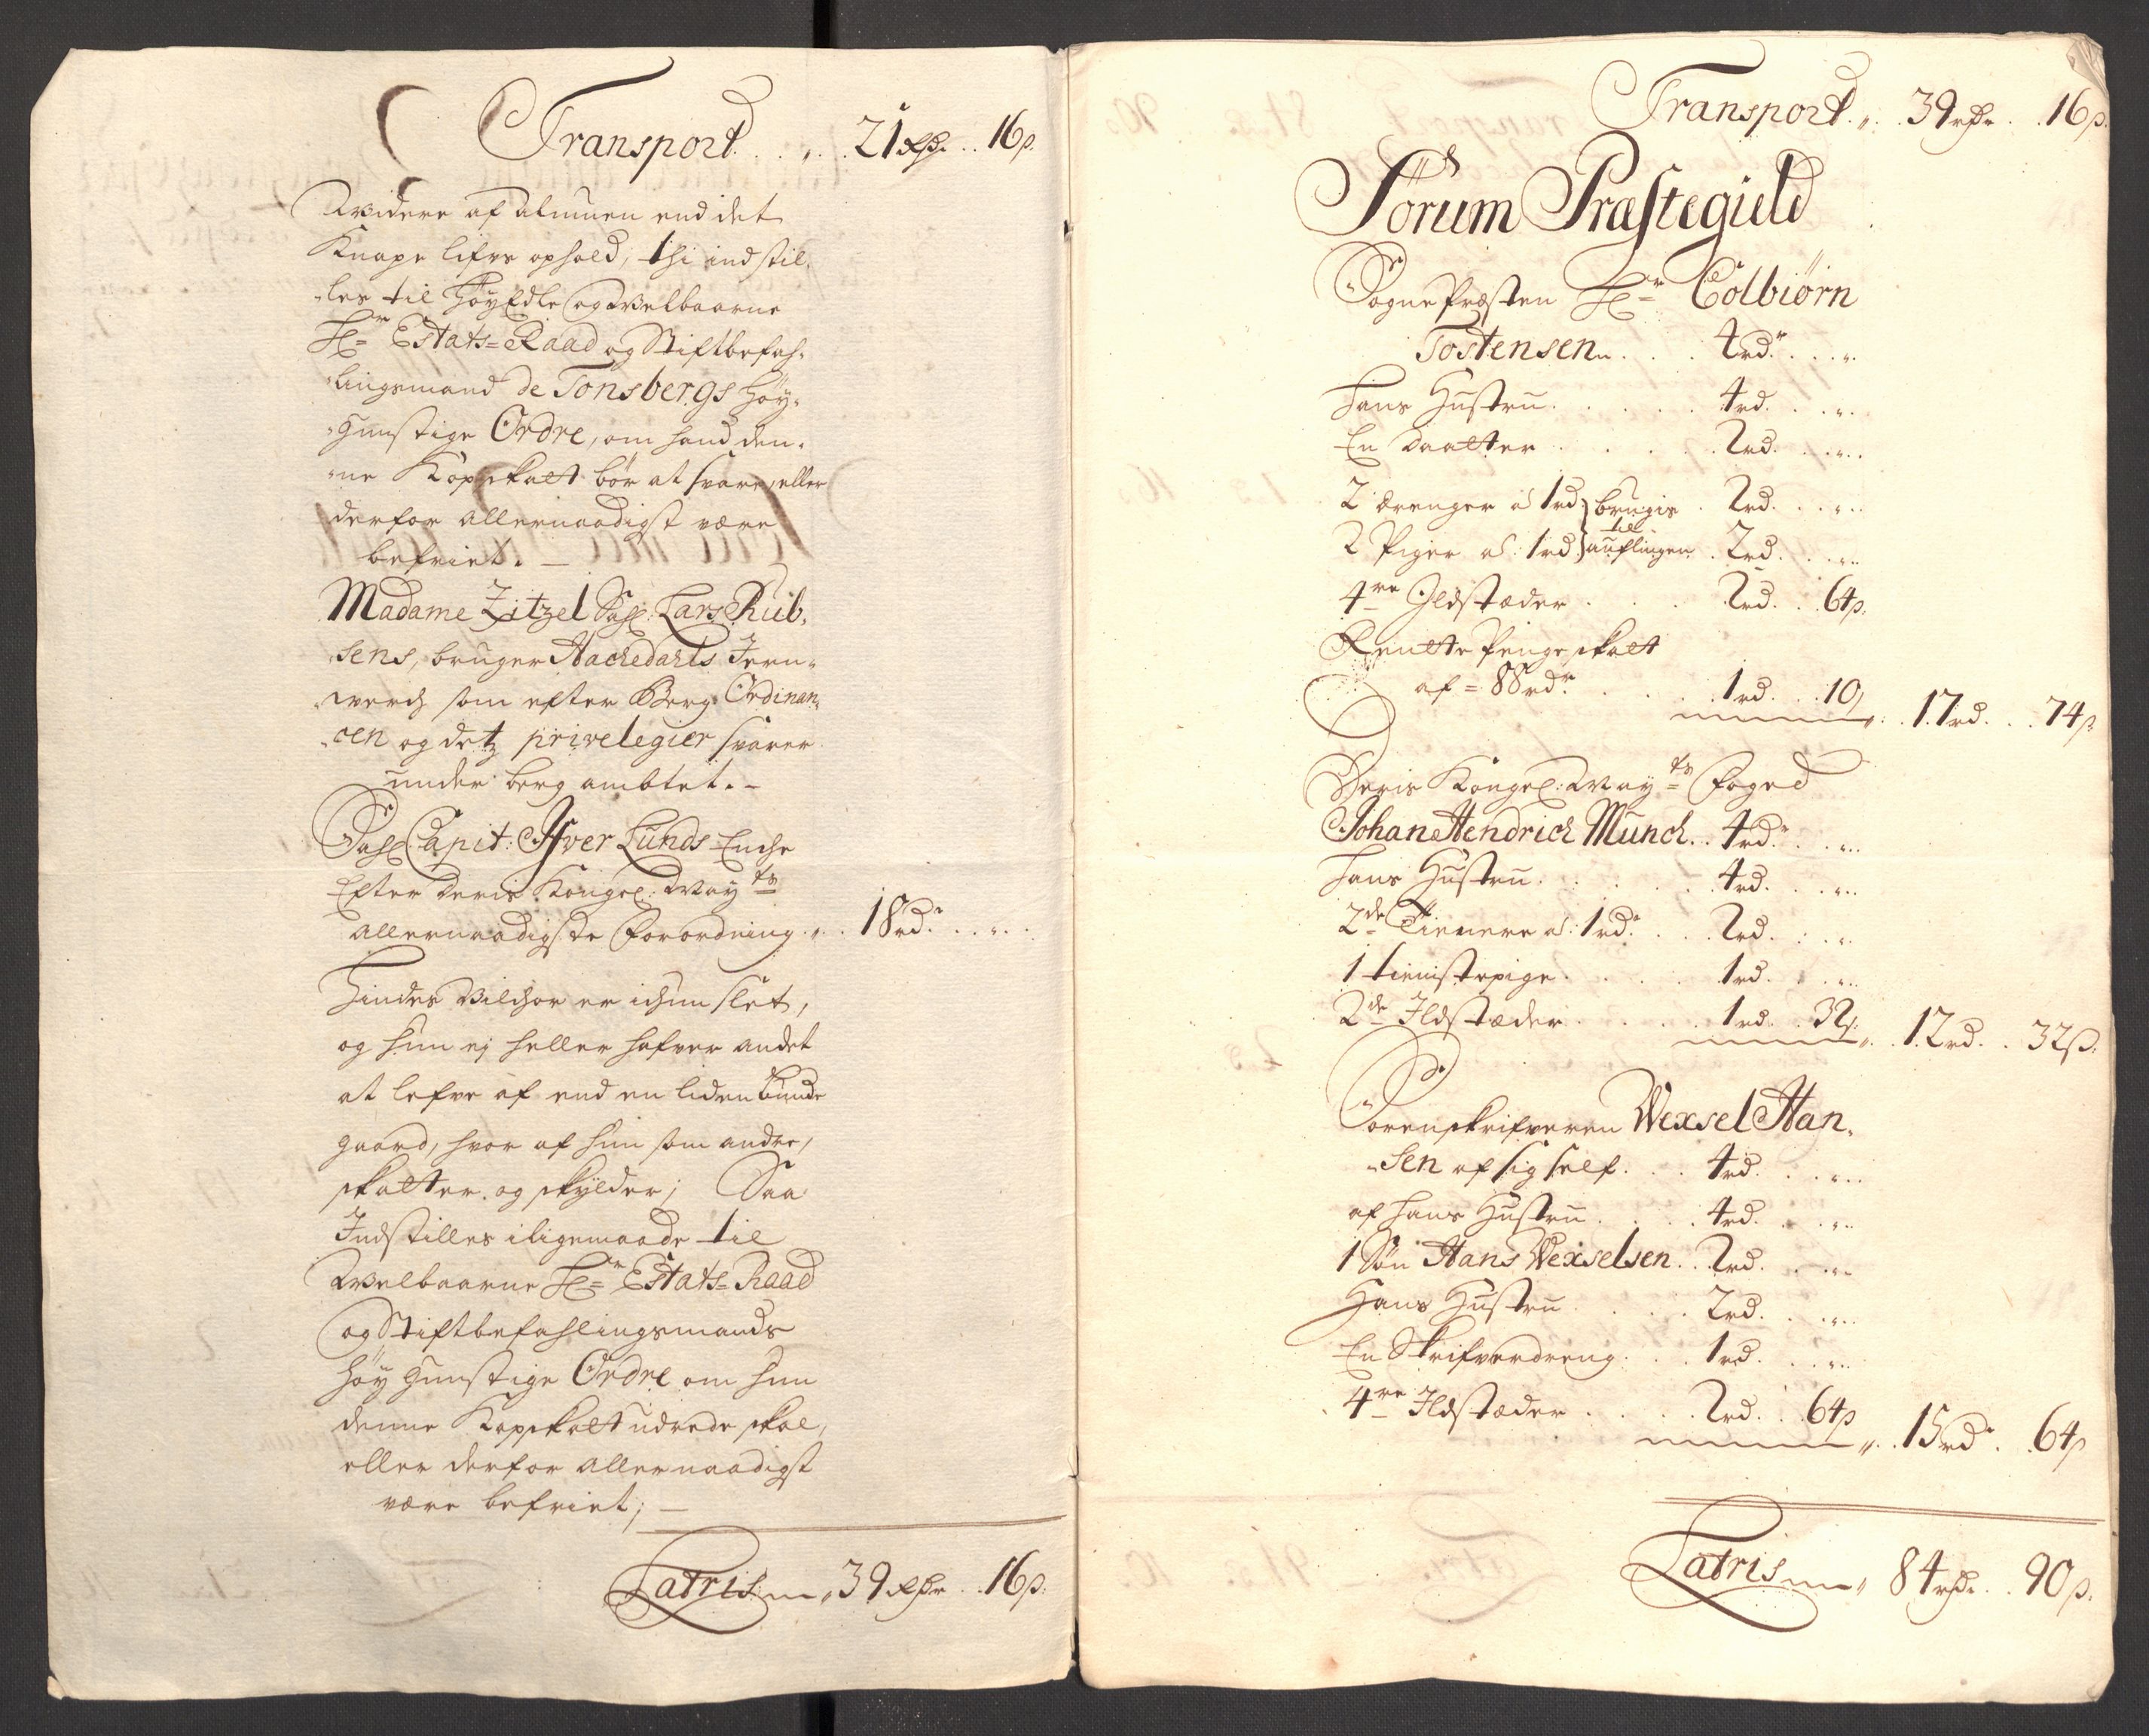 Transport . . „ . . 21 Rdr . . 16 s.
Widere af alunen end det
Knape lifs ophold, thi indstil-
-les til HøyEdle og Welbaarne
Hr Estats-Raad og Stiftbefah-
-lingsmand de Tonsbergs høy-
-gunstige Ordre, om hand den-
-ne Kopskatt bør at svare, eller
derfor allernaadigst være
befriet. —
Madame Zitzel Sahl: Lars Rub-
sens, bruger Hackedahls Jern-
werch som efter Berg Ordinan-
-cen og detz privelegier svarer
under berg ambtet. -
Sahl Capit: Ifver Lunds Enche
Efter deris Kongel: May ts
allernaadigste forordning „ . . 18 rdr . . „ . .
Hindes vilchor er ichun slet,
og hun ej heller hafver andet
at lefve af end en liden bunde
gaard, hvor af hun som andre,
skatter og skylder; Saa
Indstilles iligemaade til
Welbaarne Hr Estats-Raad
og Stiftbefahlingsmands
høy gunstige Ordre om hun
denne Kopskatt udrede skal,
eller derfor allernaadigst
være befriet; —
Latris „ 39 Rdr . . 16 s.
Transport . „ . 39 rdr . . 16 s.
Sørum Præstegield
Sogne Præsten Hr Colbiørn
Tostensen . . . 4 rdr . . „ .
Hans Hustru . . . . 4 rd. . . „ .
En Daatter . . . . 2 rd. . . „ .
2 drenger à 1 rd } brugis . 2 rd. . . „ .
til
2 Piger à: 1 rd } auflingen . 2 rd. . . „ .
4 re Ildstæder . . . 2 rd. . 64 s.
Rentte Penge skatt
af = 88 rdr . . . 1 rd. . 10 „ . . 17 rd. . . 74 s
Deris Kongel: May ts Foged
Johan Hendrich Munch . . 4 rdr . . „ .
Hans Hustru . . . . 4 rd. . . „ .
2 de Tienere à: 1 rdr . . 2 rd. . . „ .
1 tienistepige . . . . 1 rd. . . „ .
2 de Ildstæder . . . . 1 rd. . 32 s. „ . . 12 rd. . 32 s.
Sorenskrifveren Wexsel Han-
-sen af sig self . . . 4 rd. . . „ .
af hans Hustru . . . . 4 rd. . . „ .
1 Søn Hans Wexselsen . . 2 rd. . . „ .
Hans Hustru . . . . 2 rd. . . „ .
En Skrifverdreng . . . 1 rd. . . „ .
4 re Ildstæder . . . . 2 rd. . 64 s „ . . 15 rdr . 64 s
Latris „ 84 rdr . . 90 s.